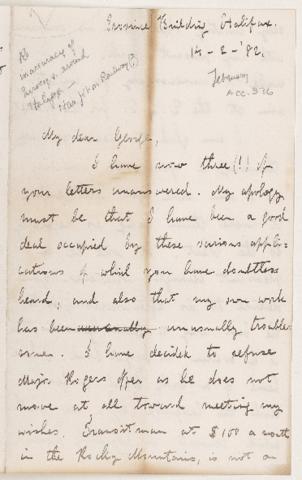 Province Building, Halifax.
14 - 2 - '82.
February
ACC. 576
Re
inaccuracy of
Surveys around
Halifax
Railway (?)
My dear George,
I have now three (!) of
your letters unanswered. My apology
must be that I have been a good
deal occupied by these various appli-
cations of which you have doubtless
heard; and also that my own work
has been unusually unusually trouble-
some. I have decided to refuse
Major Rogers offer as he does not
move at all toward meeting my
wishes. Transitman at $100 a month
in the Rocky Mountains, is not an